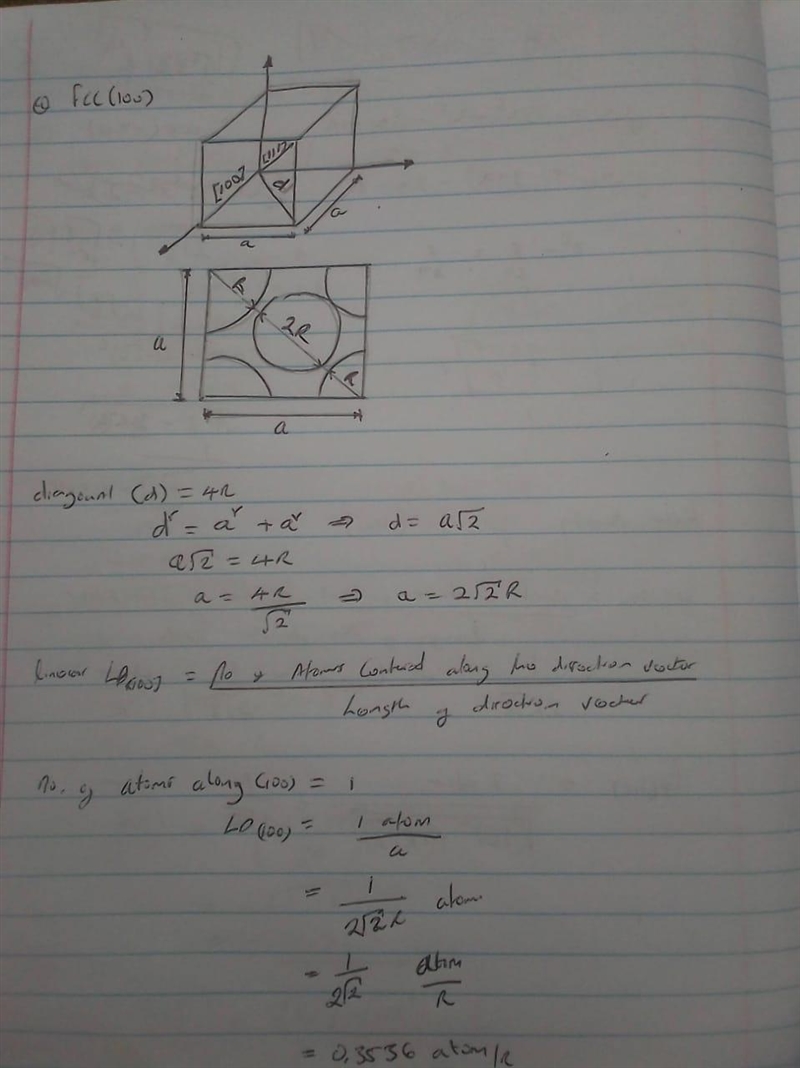 a) FCC(100)
[111]
[100]
d
a
a
R
2R
a
R
a
diagonal (d) = 4R
d² = a² + a² ⇒ d = a√2
a√2 = 4R
a = 4R/√2 ⇒ a = 2√2 R
linear LD(100) = No of Atoms Centered along the direction vector
Length of direction vector
no. of atoms along (100) = 1
LD(100) = 1 atom / a
= 1/2√2 R atom
= 1/2√2 atom/R
= 0.3536 atom/R